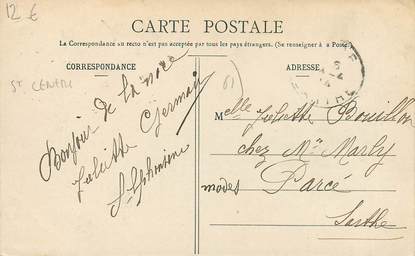 12 €
CARTE POSTALE
La Correspondance au recto n'est pas acceptée par tous les pays étrangers. (Se renseigner à la Poste).
CORRESPONDANCE
ADRESSE
ST CENTRE
61
Bonjour de la noce
Juliette Germain
Melle Juliette Bouillon
chez Me Marly
modes Parcé
Sarthe